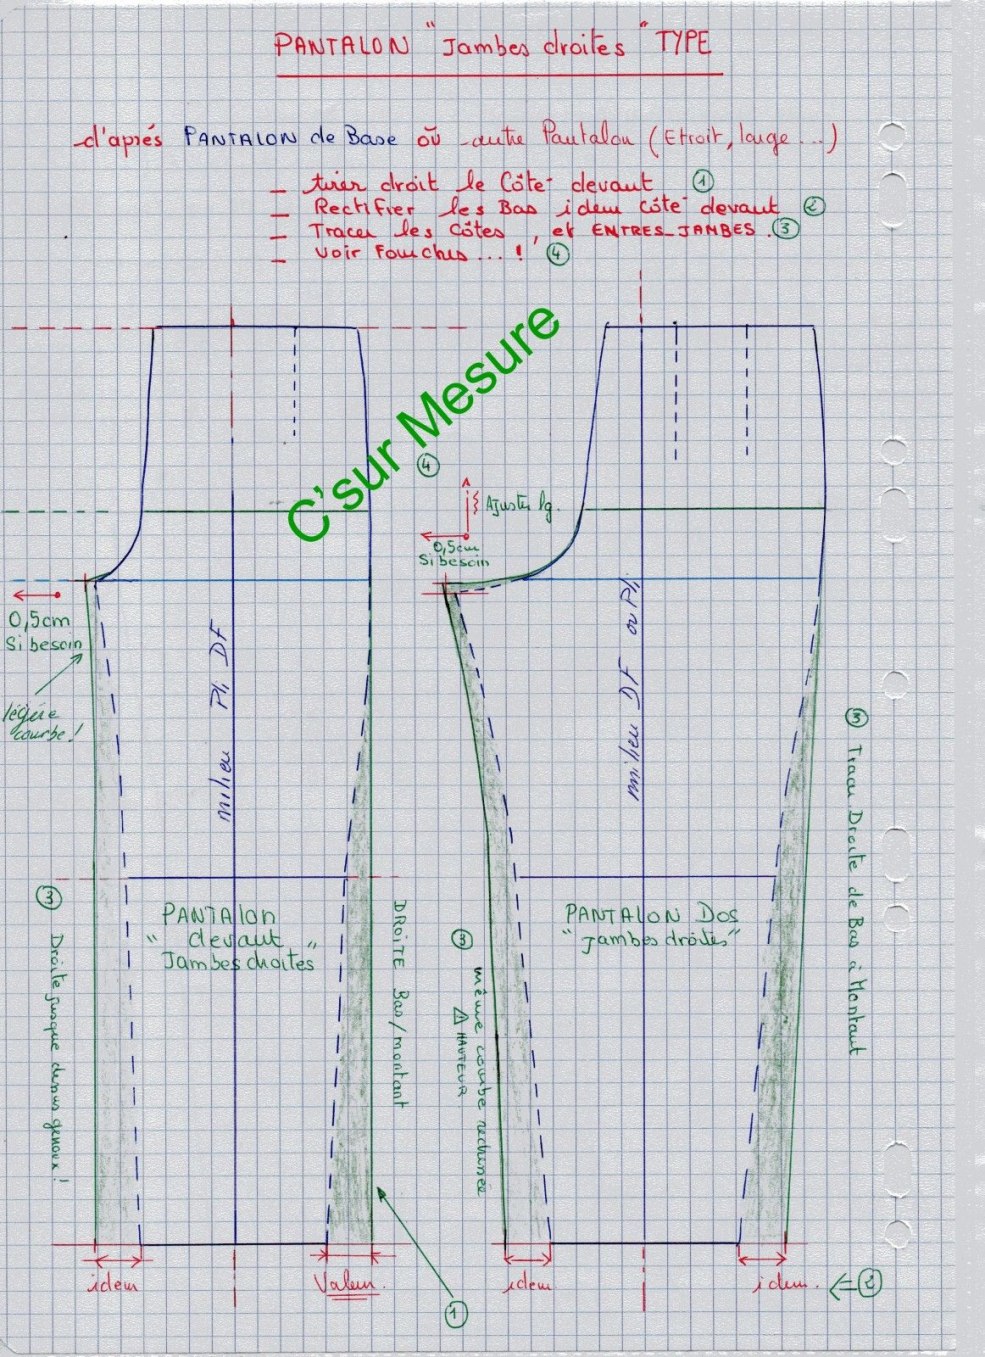 PANTALON "Jambes droites" TYPE
d'aprés PANTALON de Base oũ autre Pantalon (Etroit, large...)
- tirer droit le Côté devant ①
- Rectifier les Bas idem côté devant ②
- Tracer les côtés, et ENTRES_JAMBES. ③
- Voir Fourches...! ④
C'sur Mesure
④
Ajuster lg.
0,5cm
Si besoin
0,5cm
Si besoin
légére
courbe!
milieu Pli DF
milieu DF ou Pli
③ Tracer Droite de Bas à Montant
③ Droite jusque dessus genoux!
PANTAlon
"devant"
Jambes droites
DROITE Bas/montant
PANTALON DOS
"jambes droites"
③ même courbe
⚠ HAUTEUR
idem
Valeur
idem
idem.
②
①